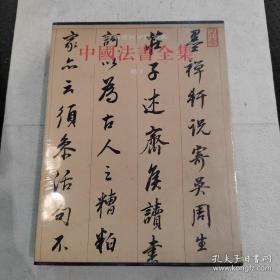 中國法書全集
墨禪軒说寄吴周生
莊子述齊侯讀書
訶以為古人之糟粕
家亦云須參活句不
孔夫子旧书网